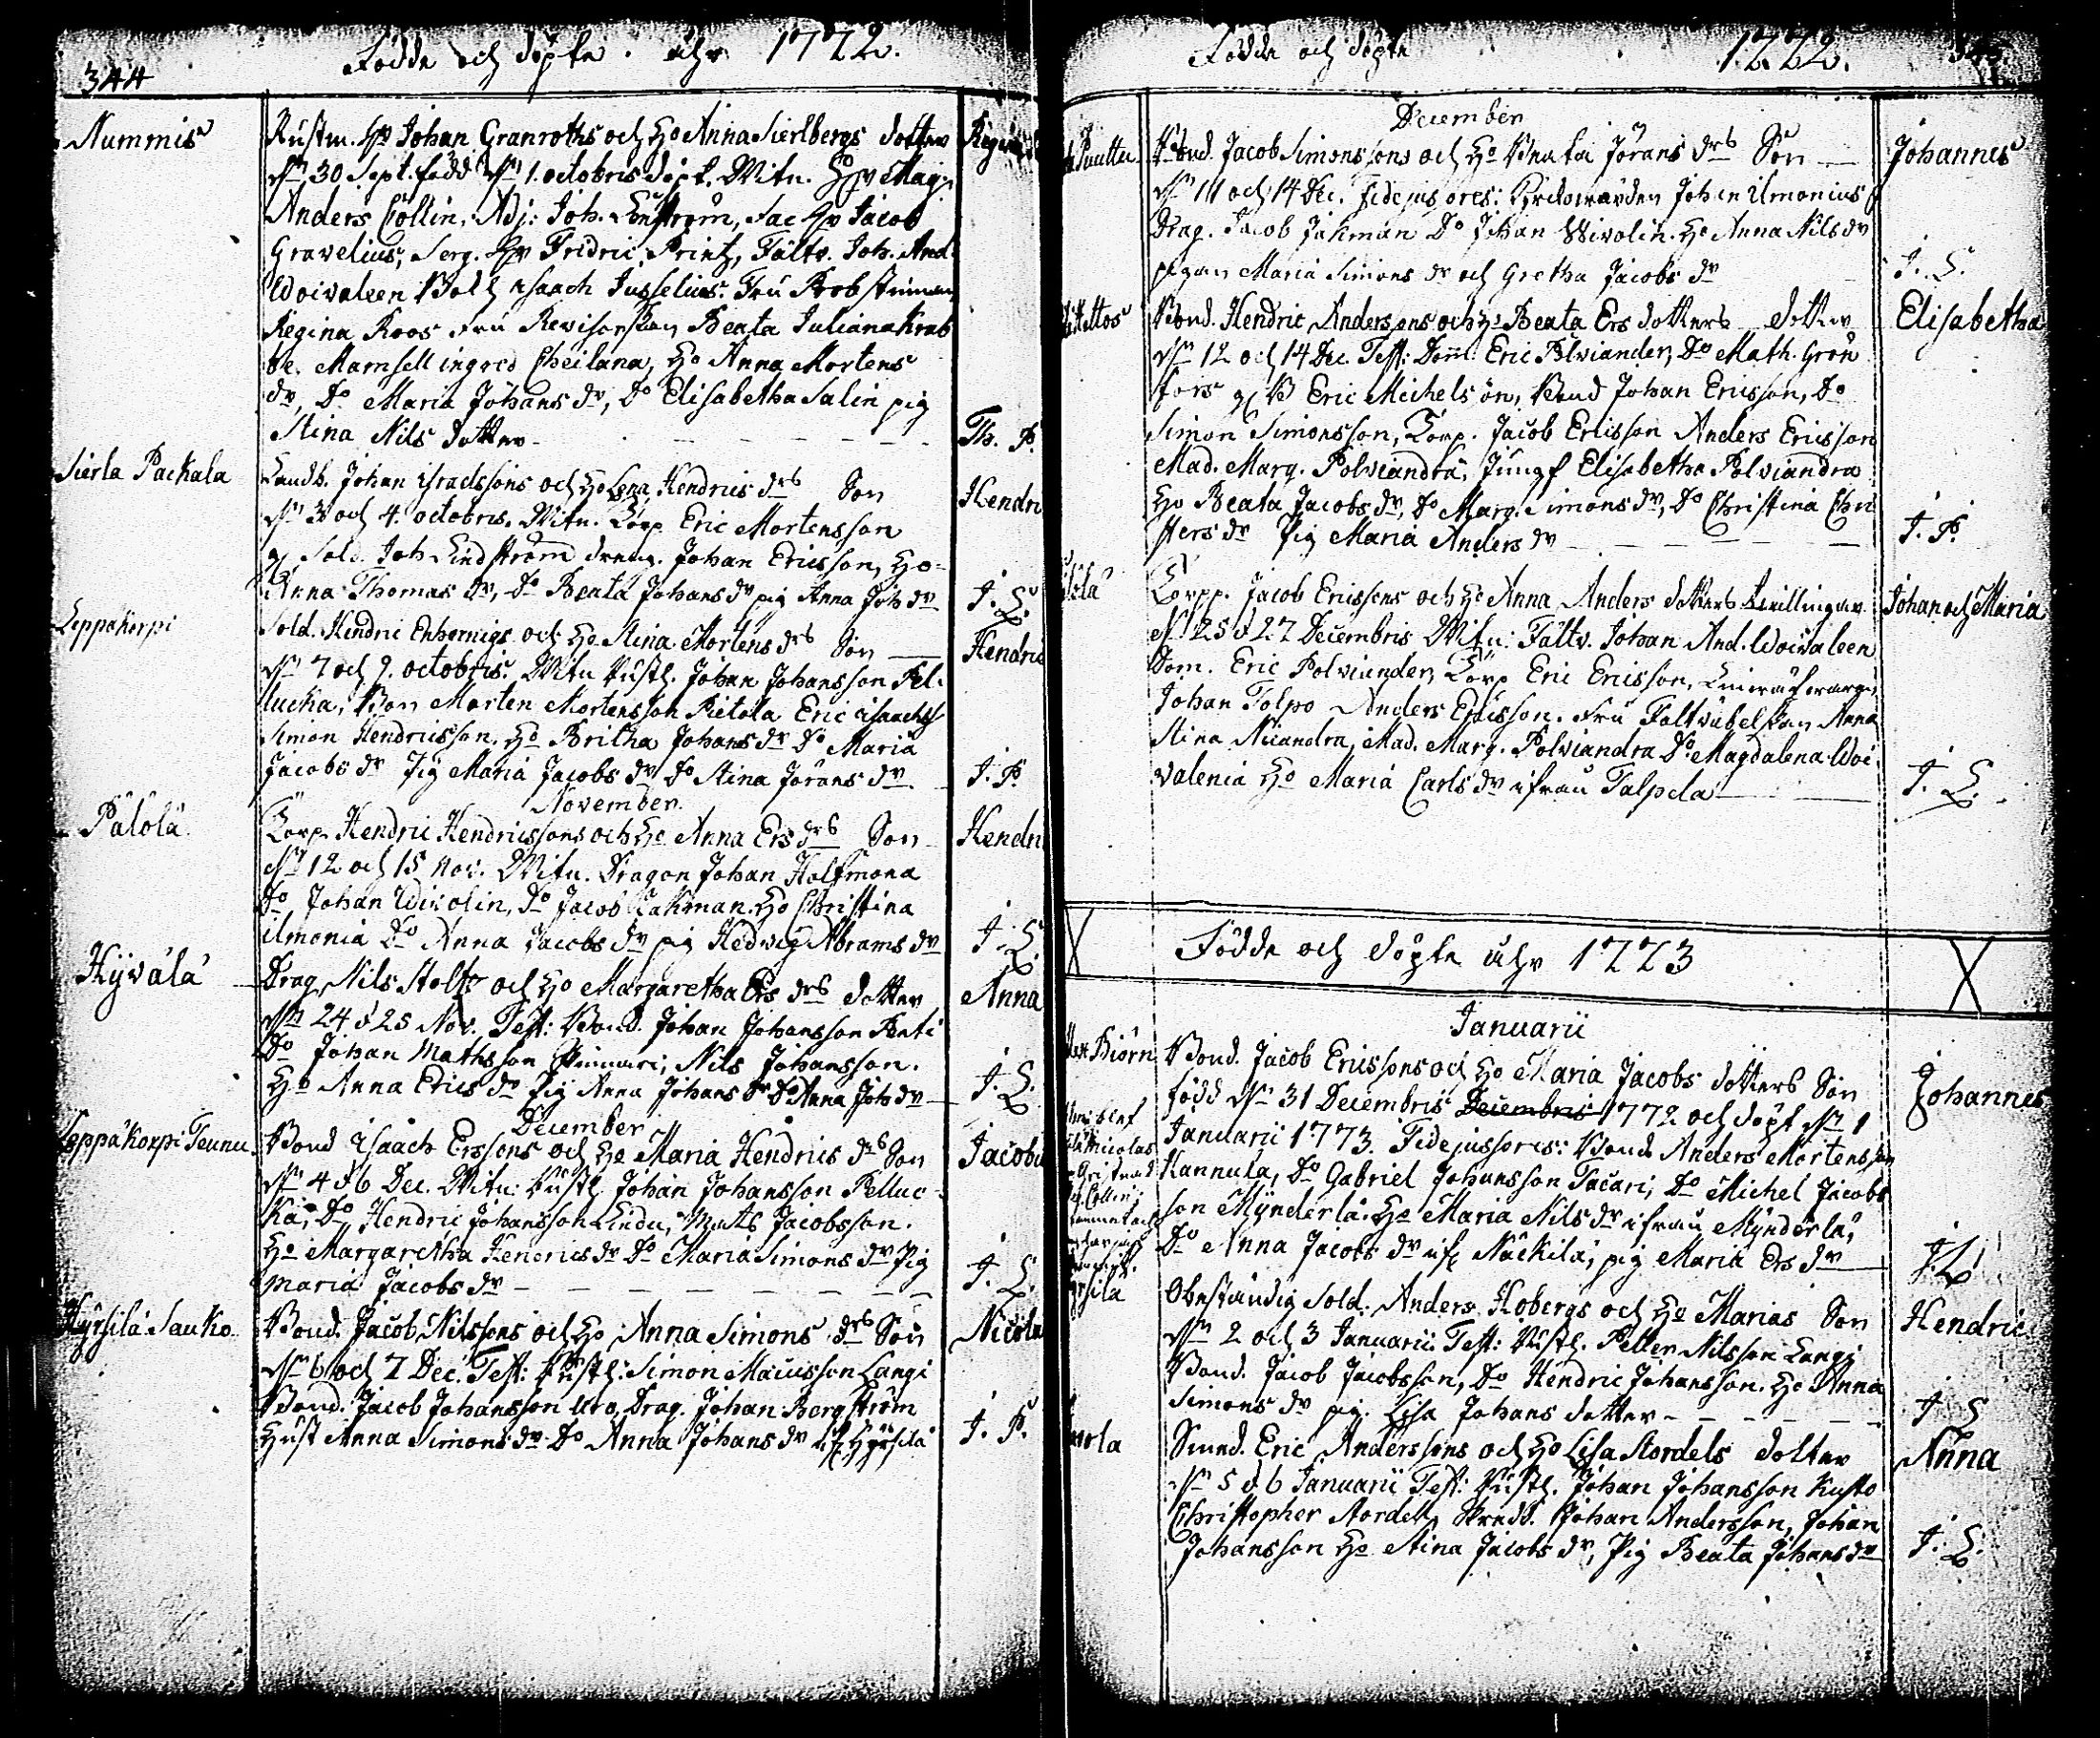 344
Födde och döpte åhr 1772.
Nummis
Rustm. Hr Johan Granroths och Ho Anna Sierlbergs dotter
dn 30 Sept. född dn 1. octobris döpt. Witn. Hr Mag.
Anders Collin, Adj: Joh. Lenström, Sac Hr Jacob
Gravelius, Serg. Hr Fridric Printz, Fältv. Joh. And.
Woivaleen Isaach Jusselius. Fru Probstinnan
Regina Roos Fru Revisorskan Beata Juliana Krab
be. Mamsell Cheilana, Ho Anna Mortens
dr, Do Maria Johans dr, Do Elisabetha Salin pig
Stina Nils dotter
Th. P.
Sierla Packala
Landb. Johan Israelssons och Ho Lena Hendrics drs Son
Hendri
dn 3 och 4. octobris. Witn. Corp Eric Mortensson
Sold. Joh Lindström dreng. Johan Ericsson, Ho
Anna Thomas dr, Do Beata Johans dr pig Anna Joh dr
J. L.
Leppäkorpi
Sold. Hendric Enhornigs och Ho Stina Mortens drs Son
Hendric
dn 7 och 9. octobris. Witn Rusth. Johan Johansson Pel-
lucka, Bon Morten Mortensson Pietola Eric Isaachs
Simon Hendricsson. Ho Britha Johans dr Do Maria
Jacobs dr Pig Maria Jacobs dr Do Stina Jörans dr
J. P.
November.
Palola
Corp Hendric Hendricssons och Ho Anna Ers drs Son
Hendri
dn 12 och 15 Nov. Witn. Dragon Johan Halfmona
Do Johan Wivolin, Do Jacob Jakman. Ho Christina
Ilmonia Do Anna Jacobs dr pig Hedwig Abrams dr
J. L.
Hyvälä
Drag. Nils Stolts och Ho Margaretha Ers drs dotter
Anna
dn 24 & 25 Nov. Test: Bond. Johan Johansson Penti
Do Johan Mathsson Nils Johansson.
Ho Anna Erics dr Pig Anna Johans dr Do Anna Joh dr
J. L.
December
Leppäkorpi Teunu
Bond Isaach Erssons och Ho Maria Hendrics drs Son
Jacobu
dn 4 & 6 Dec. Witn: Rusth. Johan Johansson Pelluc-
kä, Do Hendric Johansson Lindu, Mats Jacobsson.
Ho Margaretha Henericsdr Do Maria Simons dr Pig
Maria Jacobs dr
J. L.
Hyrsilä Sauko
Bond. Jacob Nilssons och Ho Anna Simons drs Son
Nicola
dn 6 och 7 Dec. Test: Rusth: Simon Maiusson Langi
Bond. Jacob Johansson Uro, Drag. Johan Bergström
Hust Anna Simons dr Do Anna Johans dr Hyrsilä
J. P.
Födde och döpte
1772.
December
Puuttu
Bond. Jacob Simonssons och Ho Renata Jörans drs Son
Johannes
dn 11 och 14 Dec. Fidejussores: Kyrckowärden Johan Ilmonius
Drag. Jacob Jakman Do Johan Wivolin. Ho Anna Nils dr
pigan Maria Simons dr och Gretha Jacobs dr
J. L.
Bond. Hendric Anderssons och Ho Beata Ers dotters dotter
Elisabetha
dn 12 och 14 Dec. Test: Dom. Eric Polviander, Do Math. Grön
fors Eric Michelsson, Bond Johan Ericsson, Do
Simon Simonsson, Corp. Jacob Ericsson Anders Ericsson
Mad. Marg. Polviandra, Jungf Elisabetha Polviandra
Ho Beata Jacobs dr, Do Marg. Simons dr, Do Christina Chri
sters dr Pig Maria Anders dr
J. P.
Corpp. Jacob Ericssons och Ho Anna Anders dotters twillingar
Johan och Maria
dn 25 & 27 Decembris Witn: Fältv. Johan And. Woivaleen
Dom. Eric Polviander, Corp Eric Ericsson,
Johan Tolpo Anders Ericsson. Fru Fältväbelskan Anna
Stina Nicandra, Mad. Marg. Polviandra Do Magdalena Woi
valenia Ho Maria Carls dr ifrån Talpela
J. L.
Födde och döpte åhr 1773
Januarii
Biörn
Bond. Jacob Ericssons och Ho Maria Jacobs dotters Son
Johannes
född dn 31 Decembris Decembris 1772 och döpt dn 1
Januarii 1773. Fidejussores: Bond Anders Mortensson
Hannula, Do Gabriel Johansson Tacari, Do Michel Jacobs
son Mynderlä. Ho Maria Nils dr ifrån Mynderlä,
Do Anna Jacobs dr Näckilä, pig Maria Ers dr
J. L.
Obeständig Sold. Anders Hobergs och Ho Marias Son
Hendric
dn 2 och 3 Januarii Test: Rusth. Petter Nilsson Langi
Bond. Jacob Jacobsson, Do Hendric Johansson. Ho Anna
Simons dr pig. Lisa Johans dotter
J L
Sunnd. Eric Anderssons och Ho Lisa Stordels dotter
Anna
dn 5 & 6 Januarii Test: Rusth. Johan Johansson Kusto
Christopher Stordell, Johan Andersson, Johan
Johansson Ho Stina Jacobs dr, Pig Beata Johans dr
J. L.